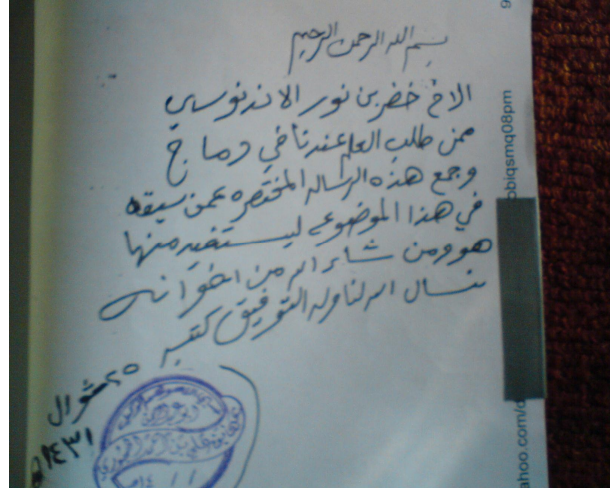 بسم الله الرحمن الرحيم
الأخ خضر بن نور الاندنوسي
ممن طلب العلم عندنا في دماج
وجمع هذه الرساله المختصره عمن سبقه
في هذا الموضوع ليستفيد منها
هو ومن شاء الله من اخوانه
نسال الله لنا وله التوفيق كتبه
٢٥ شوال
١٤٣١هـ
obiqsmq08pm
ahoo.com/